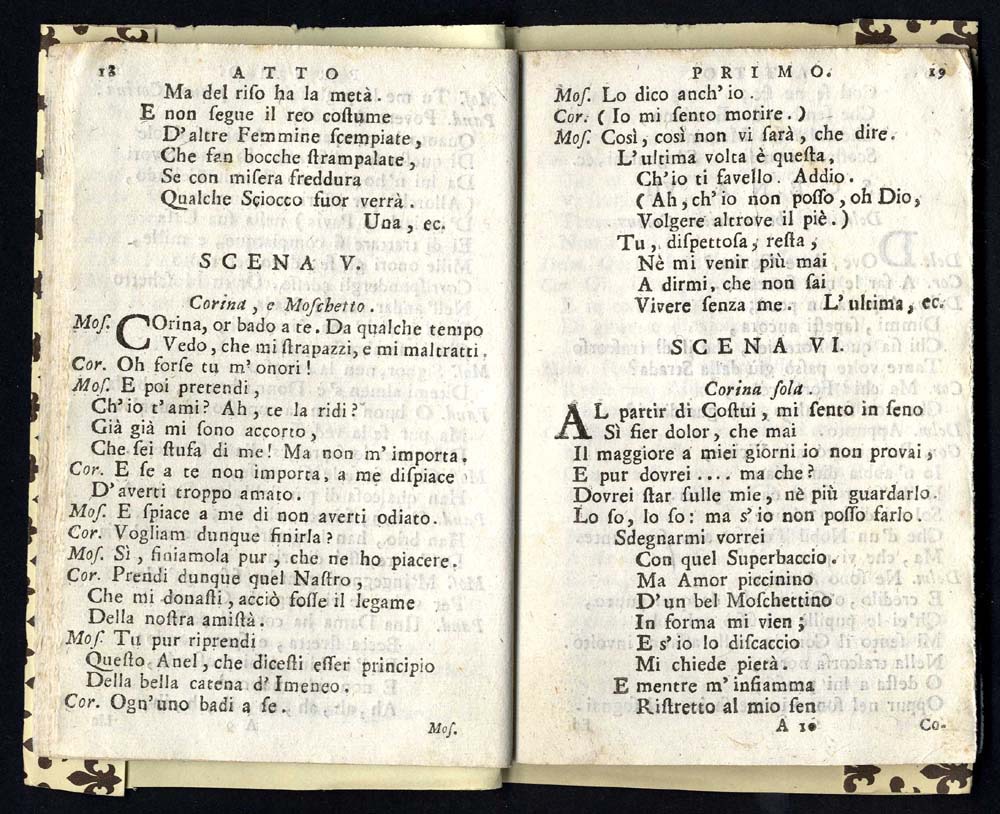 18 ATTO
Ma del riſo ha la metà
E non ſegue il reo coſtume
D'altre Femmine ſcempiate,
Che fan bocche ſtrampalate,
Se con miſera freddura
Qualche Sciocco fuor verrà.
Una, ec.
SCENA V.
Corina, e Moſchetto.
Moſ. COrina, or bado a te. Da qualche tempo
Vedo, che mi ſtrapazzi, e mi maltratti.
Cor. Oh forſe tu m'onori!
Moſ. E poi pretendi,
Ch'io t'ami? Ah, te la ridi?
Già già mi ſono accorto,
Che ſei ſtufa di me! Ma non m'importa.
Cor. E ſe a te non importa, a me diſpiace
D'averti troppo amato.
Moſ. E ſpiace a me di non averti odiato.
Cor. Vogliam dunque finirla?
Moſ. Sì, finiamola pur, che ne ho piacere.
Cor. Prendi dunque quel Naſtro,
Che mi donaſti, acciò foſſe il legame
Della noſtra amiſtà.
Moſ. Tu pur riprendi
Queſto, Anel, che diceſti eſſer principio
Della bella catena d'Imeneo.
Cor. Ogn'uno badi a ſe.
Moſ.
PORTIMO. 19
Moſ. Lo dico anch'io.
Cor. (Io mi ſento morire.)
Moſ. Così, così non vi ſarà, che dire.
L'ultima volta è queſta,
Ch'io ti favello. Addio.
(Ah, ch'io non poſſo, oh Dio,
Volgere altrove il piè.)
Tu, diſpettoſa, reſta,
Nè mi venir più mai
A dirmi, che non ſai
Vivere ſenza me. L'ultima, ec.
SCENA VI.
Corina ſola.
AL partir di Coſtui, mi ſento in ſeno
Sì fier dolor, che mai
Il maggiore a miei giorni io non provai,
E pur dovrei .... ma che?
Dovrei ſtar ſulle mie, nè più guardarlo.
Lo ſo, lo ſo: ma s'io non poſſo farlo.
Sdegnarmi vorrei
Con quel Superbaccio.
Ma Amor piccinino
D'un bel Moſchettino
In forma mi vien;
E s'io lo diſcaccio
Mi chiede pietà.
E mentre m'infiamma
Riſtretto al mio ſen
A 10 Co-